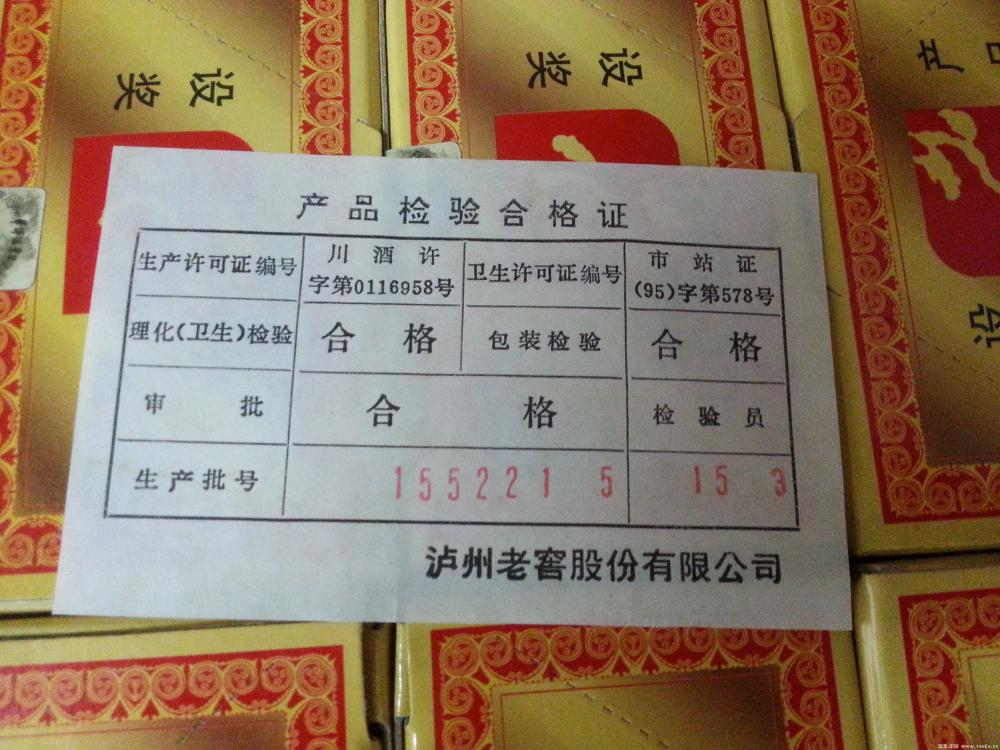 设
奖
设
奖
产品
设
产品检验合格证
生产许可证编号
川酒许
字第0116958号
卫生许可证编号
市站证
(95)字第578号
理化(卫生)检验
合格
包装检验
合格
审批
合格
检验员
生产批号
155221 5
15 3
泸州老窖股份有限公司